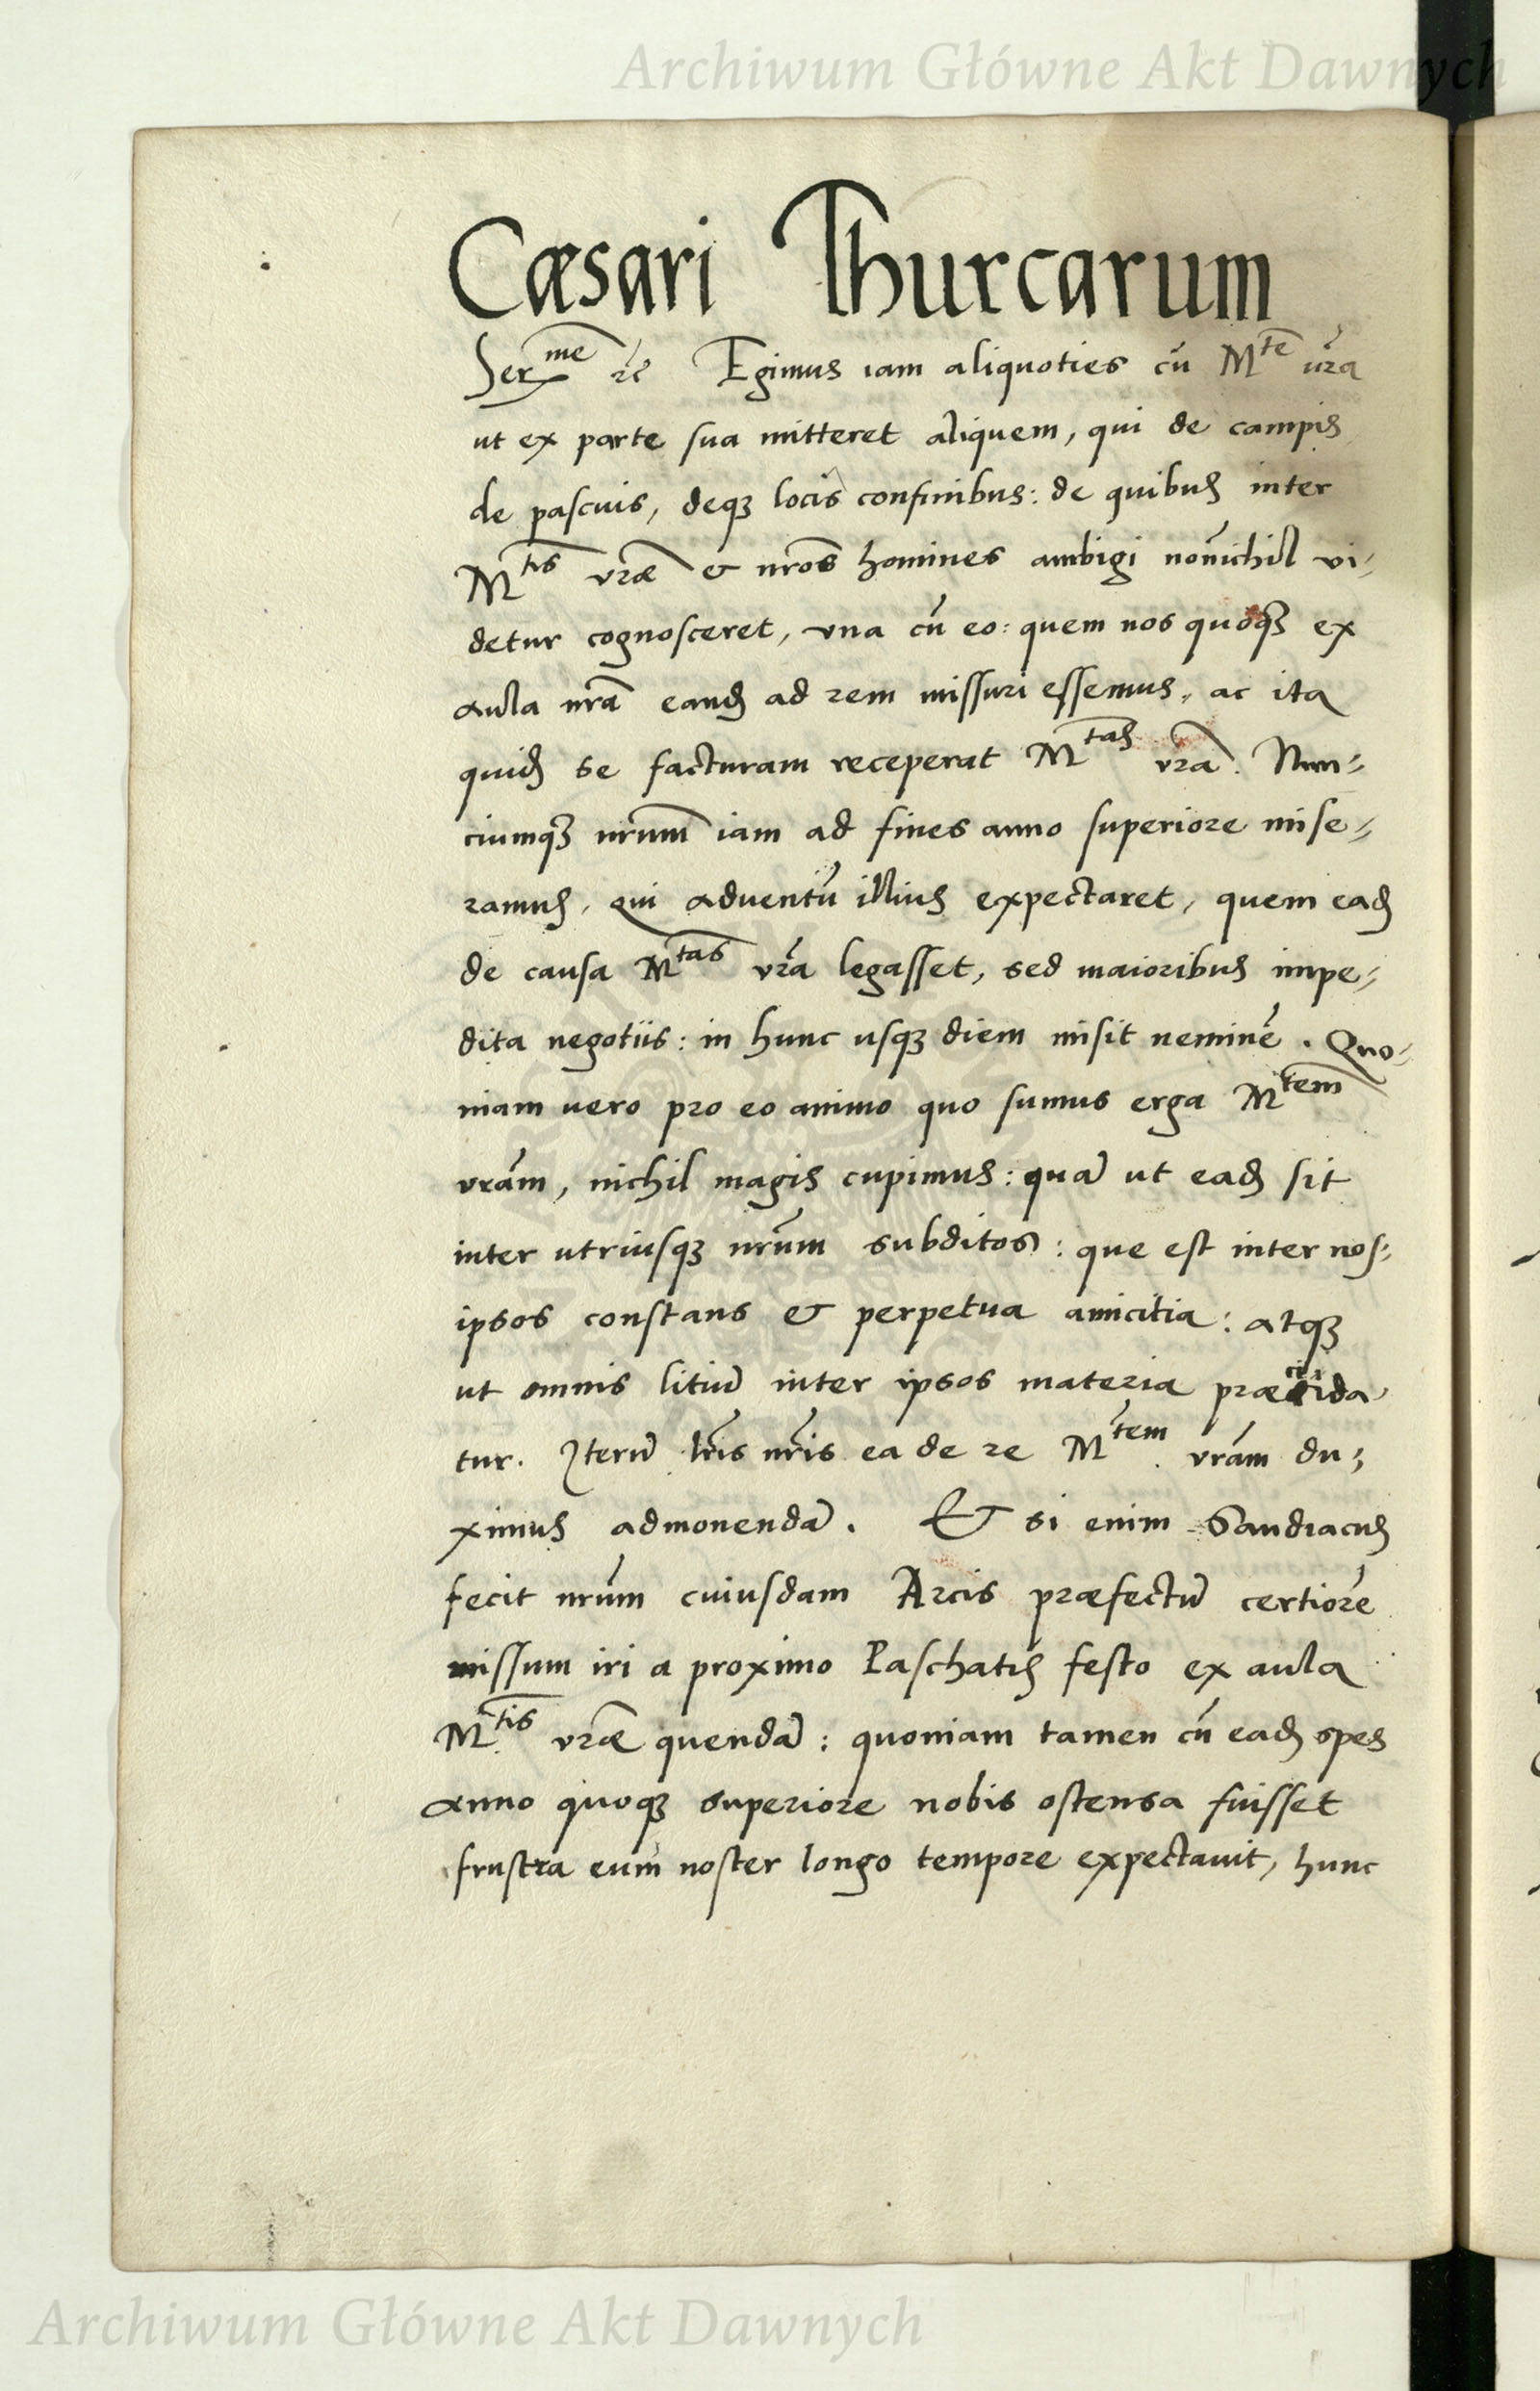 Archiwum Główne Akt Dawnych
Cæsari Thurcarum
Ser^me rc̃ Egimus iam aliquoties cũ M^te vr̃a
ut ex parte sua mitteret aliquem, qui de campis
de pascuis, deq3 locis confinibus: de quibus inter
M^tis vr̃æ & nr̃os homines ambigi nõnichil vi-
detur cognosceret, vna cũ eo: quem nos quoq3 ex
aula nr̃a eanđ ad rem missuri essemus, ac ita
quiđ se facturam receperat M^tas vr̃a. Nun-
ciumq3 nr̃um iam ad fines anno superiore mise-
ramus, qui adventũ illius expectaret, quem eađ
de causa M^tas vr̃a legasset, sed maioribus impe-
dita negotiis: in hunc usq3 diem misit neminẽ. Quo-
niam vero pro eo animo quo sumus erga M^tem
vr̃am, nichil magis cupimus: quã ut eađ sit
inter utriusq3 nr̃um subditos: que est inter nos-
ipsos constans & perpetua amicitia: atq3
ut omnis litiũ inter ipsos materia præcida-
tur. Iterũ lr̃is nr̃is ea de re M^tem vr̃am du-
ximus admonendã. Et si enim Sandiacus
fecit nr̃um cuiusdam Arcis præfectũ certiorẽ
missum iri a proximo Paschatis festo ex aula
M^tis vr̃æ quendã: quoniam tamen cũ eađ spes
anno quoq3 superiore nobis ostensa fuisset
frustra eum noster longo tempore expectavit, hunc
Archiwum Główne Akt Dawnych